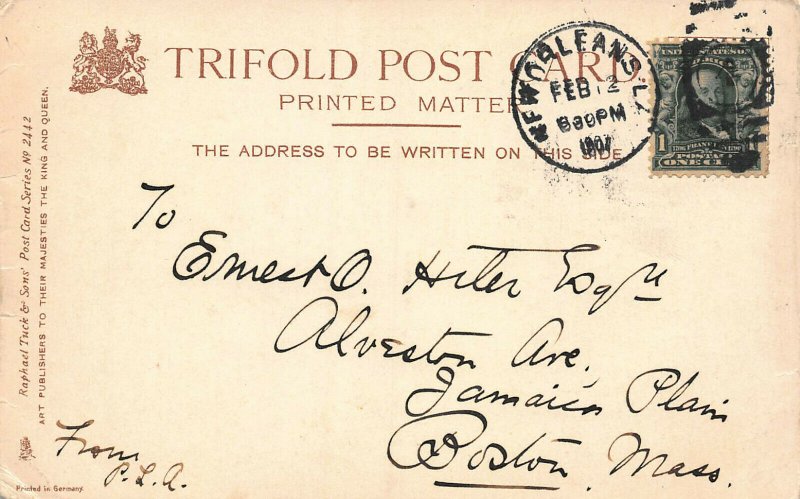 TRIFOLD POST CARD.
PRINTED MATTER
THE ADDRESS TO BE WRITTEN ON THIS SIDE
NEW ORLEANS, LA
FEB 12
630PM
1907
1
POSTAGE
ONE CENT
To
Ernest O. Hiler Esqre
Alveston Ave,
Jamaica Plain
Boston, Mass.
From
P.L.A.
Raphael Tuck & Sons' Post Card Series No 2442
ART PUBLISHERS TO THEIR MAJESTIES THE KING AND QUEEN.
Printed in Germany.